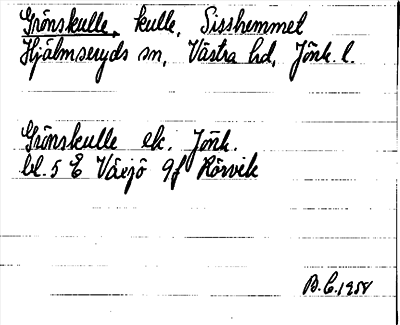 Grönskulle, kulle, Sisshemmet
Hjälmseryds sn, Västra hd, Jönk. l.
Grönskulle ek. Jönk.
bl. 5 E Växjö 9f Rörvik
B.C. 1958